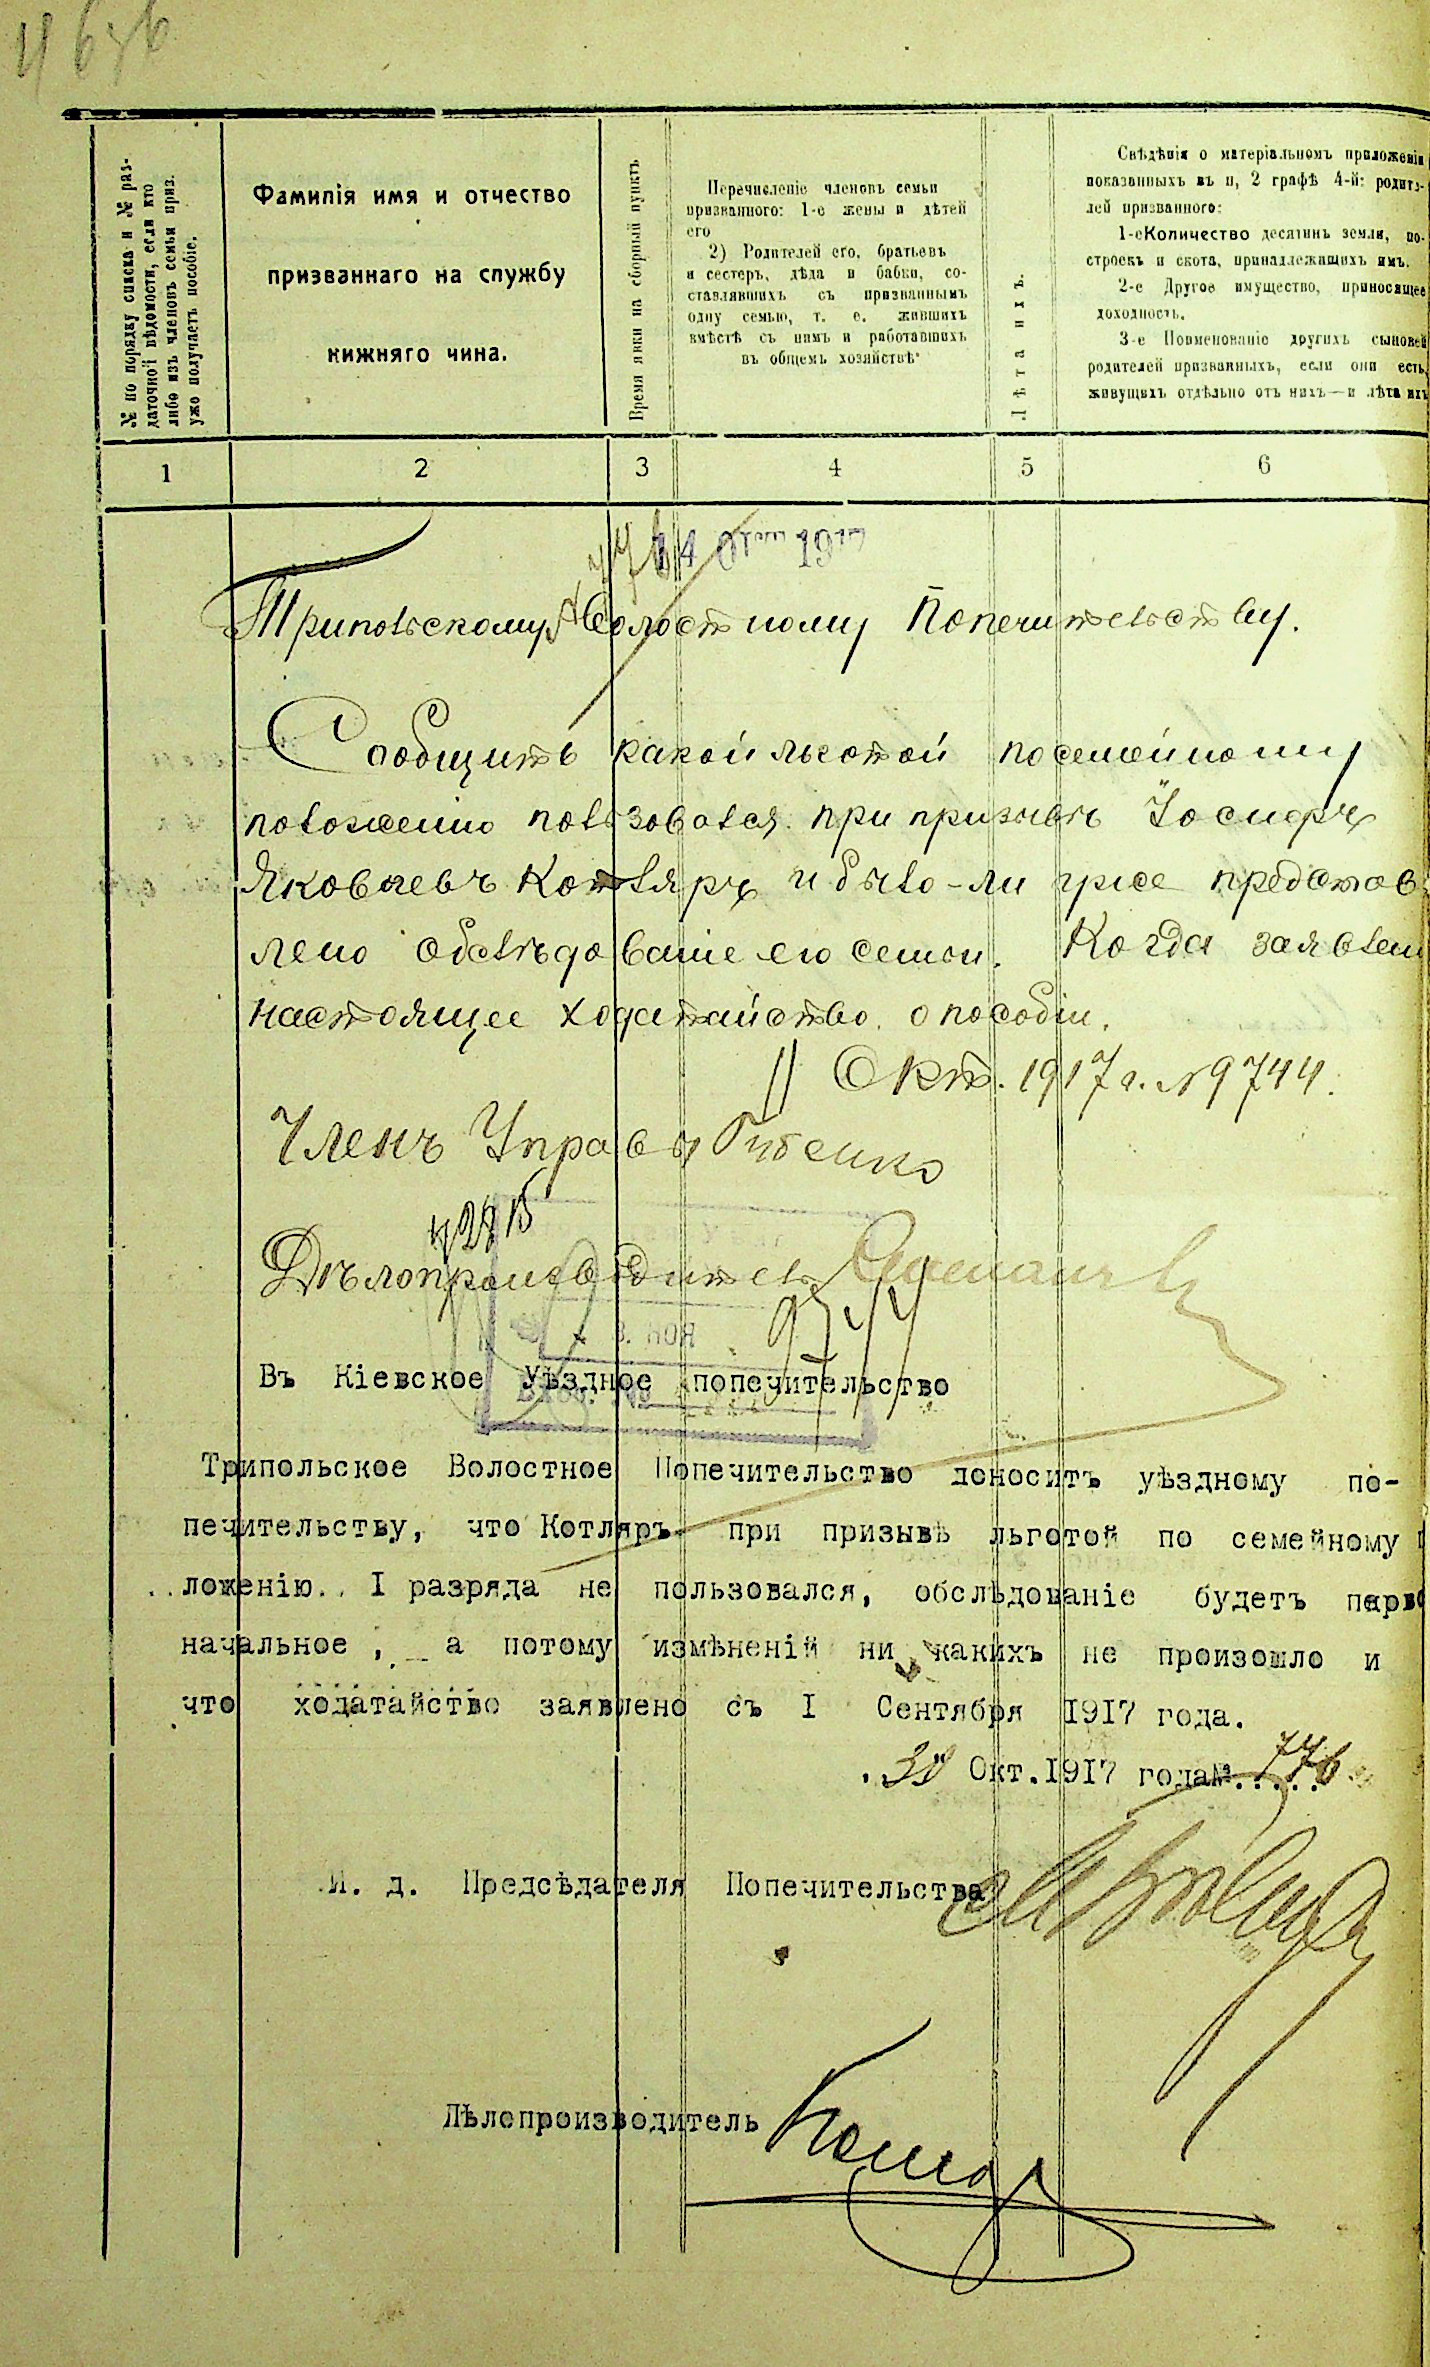 № по порядку списка и № раз-
даточной вѣдомости, если кто
либо изъ членовъ семьи приз.
уже получаетъ пособіе.
Фамилія имя и отчество
призваннаго на службу
нижняго чина.
Время явки на сборный пунктъ
Перечисленіе членовъ семьи
призваннаго: 1-е жены и дѣтей
его
2) Родителей его, братьевъ
и сестеръ, дѣда и бабки, со-
ставлявшихъ съ призваннымъ
одну семью, т. е. жившихъ
вмѣстѣ съ нимъ и работавшихъ
въ общемъ хозяйствѣ
Лѣта ихъ.
Свѣдѣнія о матеріальномъ приложеніи
показанныхъ въ п, 2 графѣ 4-й: родите-
лей призваннаго:
1-е Количество десятинъ земли, по-
строекъ и скота, принадлежащихъ имъ.
2-е Другое имущество, приносящее
доходность.
3-е Поименованіе другихъ сыновей
родителей призванныхъ, если они есть,
живущихъ отдѣльно отъ нихъ—и лѣта ихъ
1 2 3 4 5 6
776
14 ОКТ 1917
Трипольскому Волостному Попечительству.
Сообщить какой льготой посемейному
положенію пользовался при призывѣ Іосифъ
Яковлевъ Котляръ и было-ли уже представ
лено обслѣдованіе его семьи. Когда заявлен
настоящее ходатайство о пособіи.
11 Окт. 1917 г. № 9744.
Членъ Управы
Дѣлопроизводитель
3. НОЯ
9744
Въ Кіевское Уѣздное попечительство
Трипольское Волостное Попечительство доноситъ уѣздному по-
печительству, что Котляръ при призывѣ льготой по семейному п
ложенію I разряда не пользовался, обслѣдованіе будетъ перво
начальное , а потому измѣненій ни какихъ не произошло и
что ходатайство заявлено съ I Сентября 1917 года.
30 Окт.1917 года № 776
И. д. Предсѣдателя Попечительства
Дѣлопроизводитель